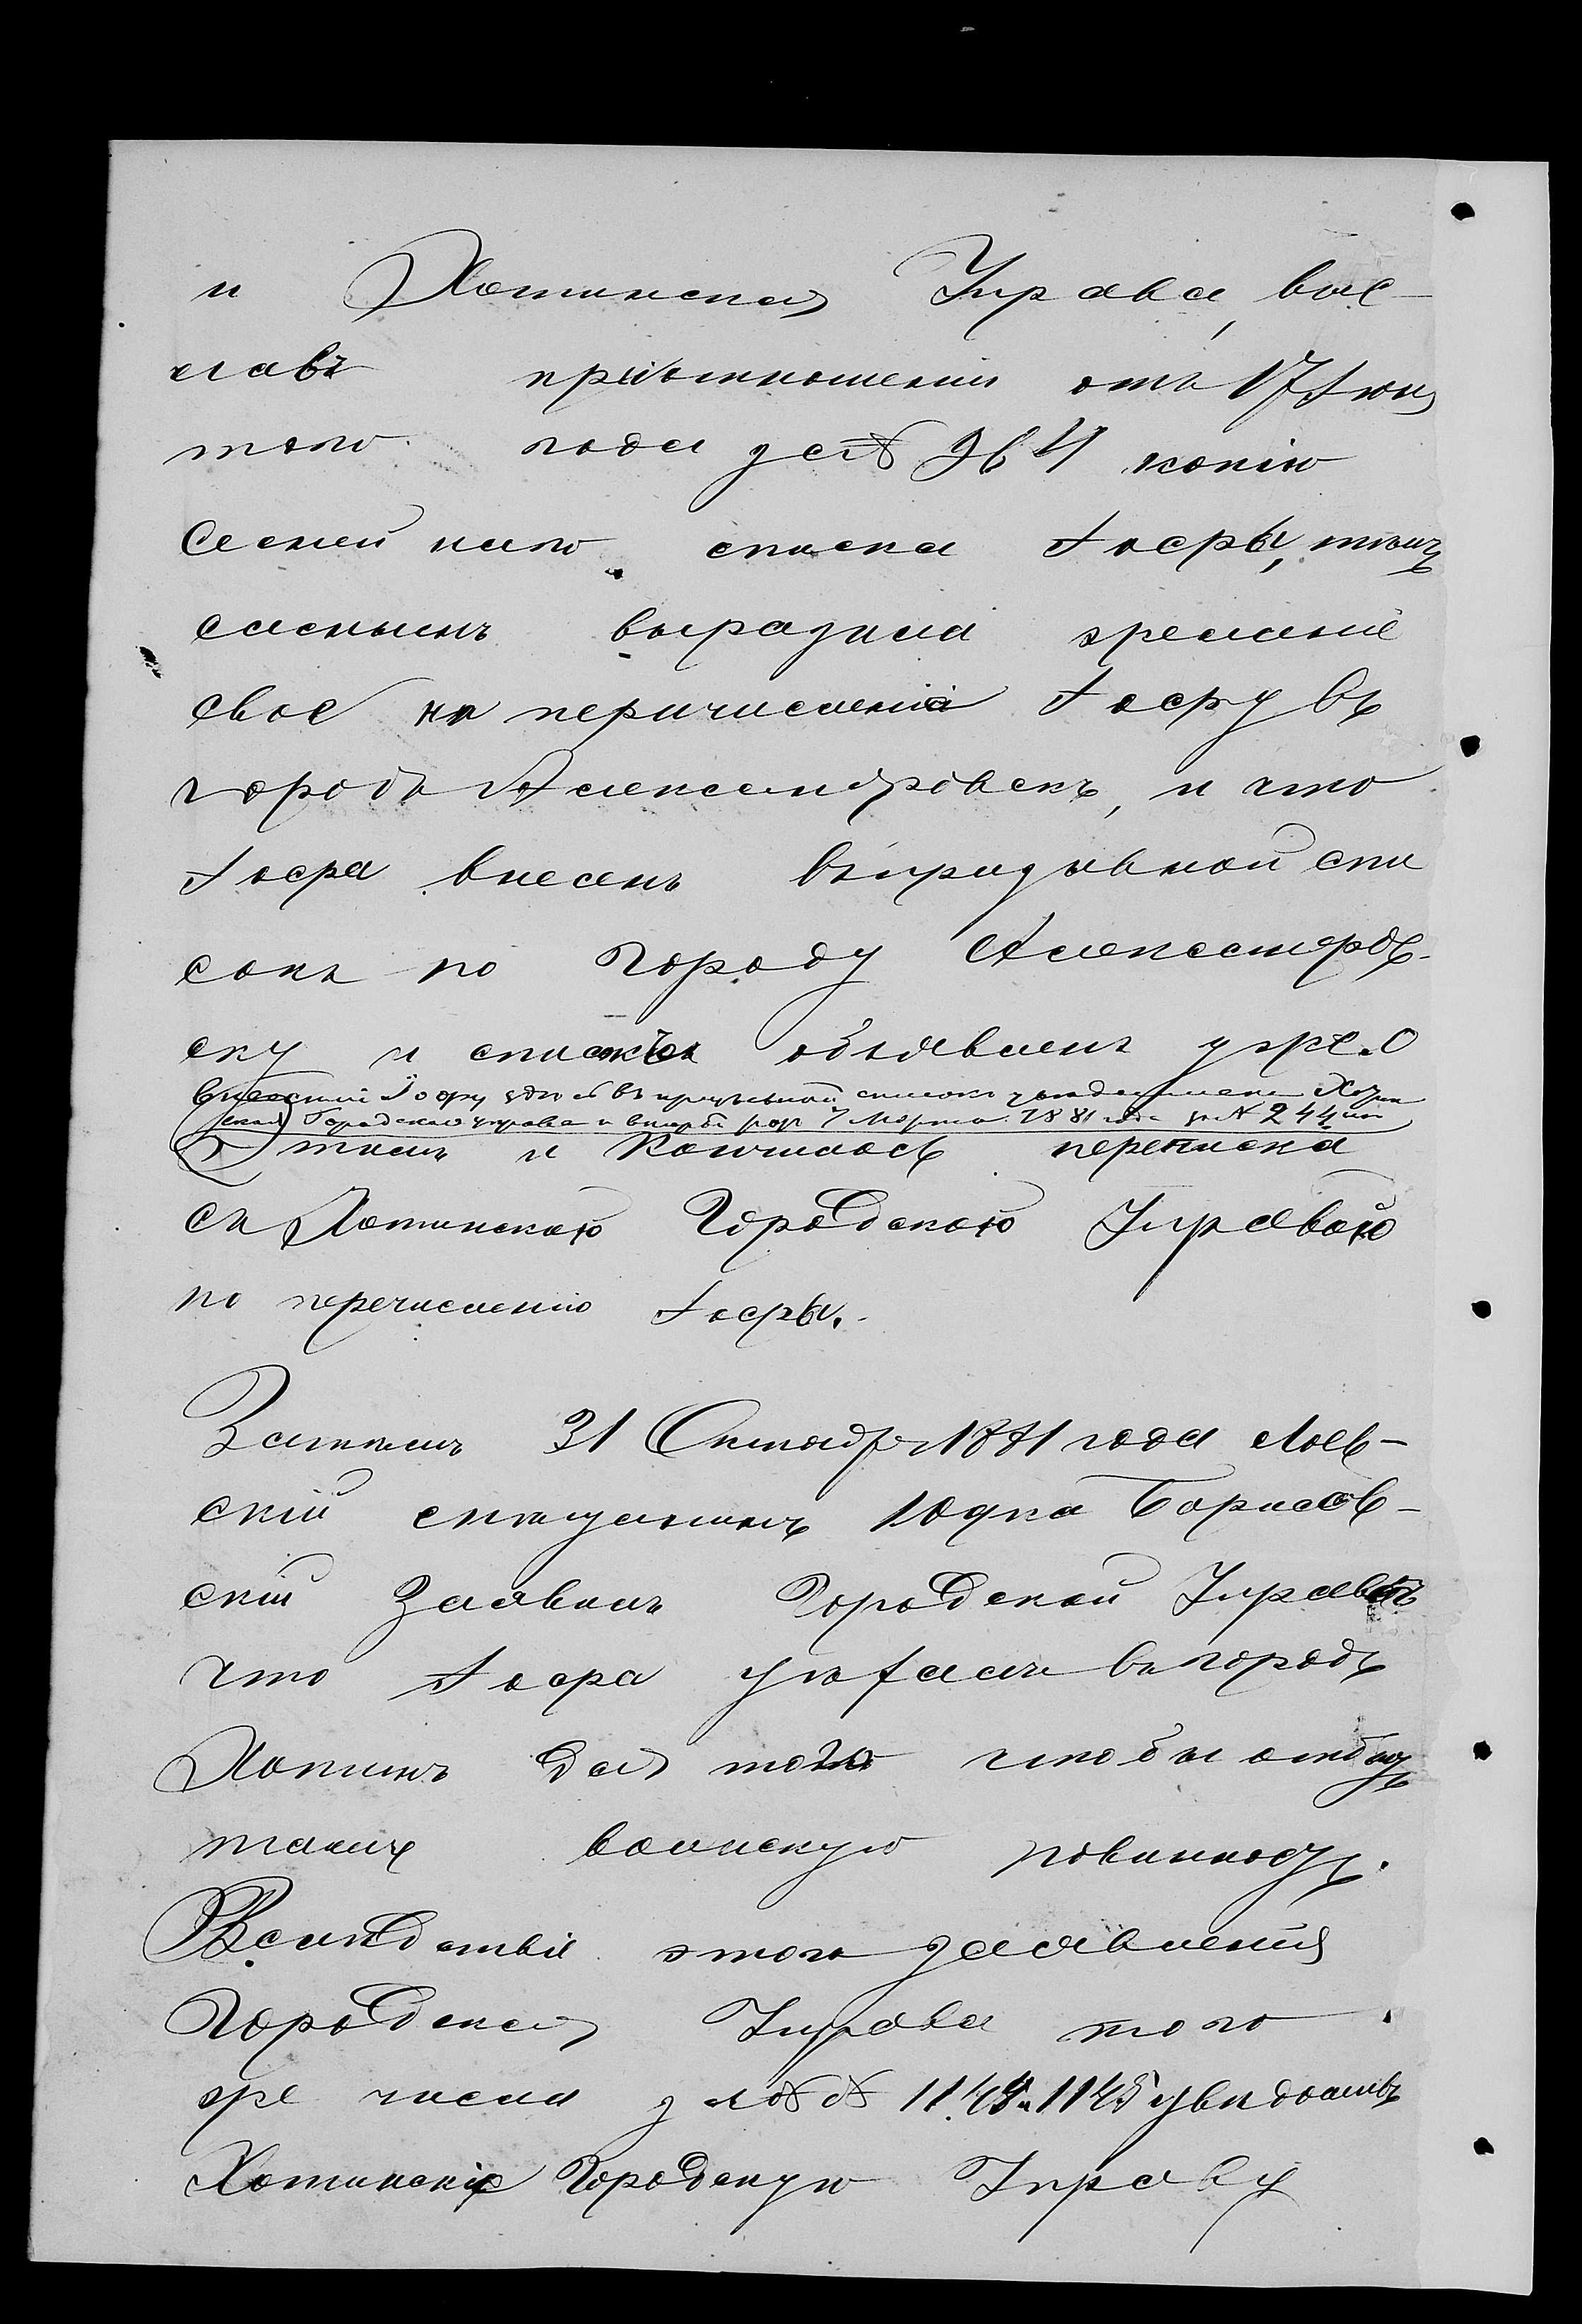 и Хотинская Управа, выс-
лавъ приотношеніи отъ 17 Іюня
того года за № 964 копію
семейнаго списка Іосры, тѣмъ
самымъ выразила желаніе
свое на перечисленіе Іосру въ
городъ Александровскъ, и что
Іосра внесенъ въ призывной спи
сокъ по городу Александров-
ску и списокъ объявленъ уже. О
внесеніи Іосру здѣсь въ призывной списокъ увѣдомлена Хотин
ская Городская управа и второй разъ 7 Марта 1881 года за № 244
тѣмъ и кончилась переписка
съ Хотинскою Городскою Управою
по перечисленію Іосры.
Затѣмъ 31 Октября 1881 года Лоев-
скій мѣщанинъ Юдка Борисов-
скій заявилъ Городской Управѣ
что Іосра уѣхалъ въ городъ
Хотинъ для того чтобы отбыть
тамъ воинскую повинность.
Вслѣдствіе этого заявленія
Городская Управа того
же числа за №№ 1144 и 1145 увѣдомивъ
Хотинскую Городскую Управу